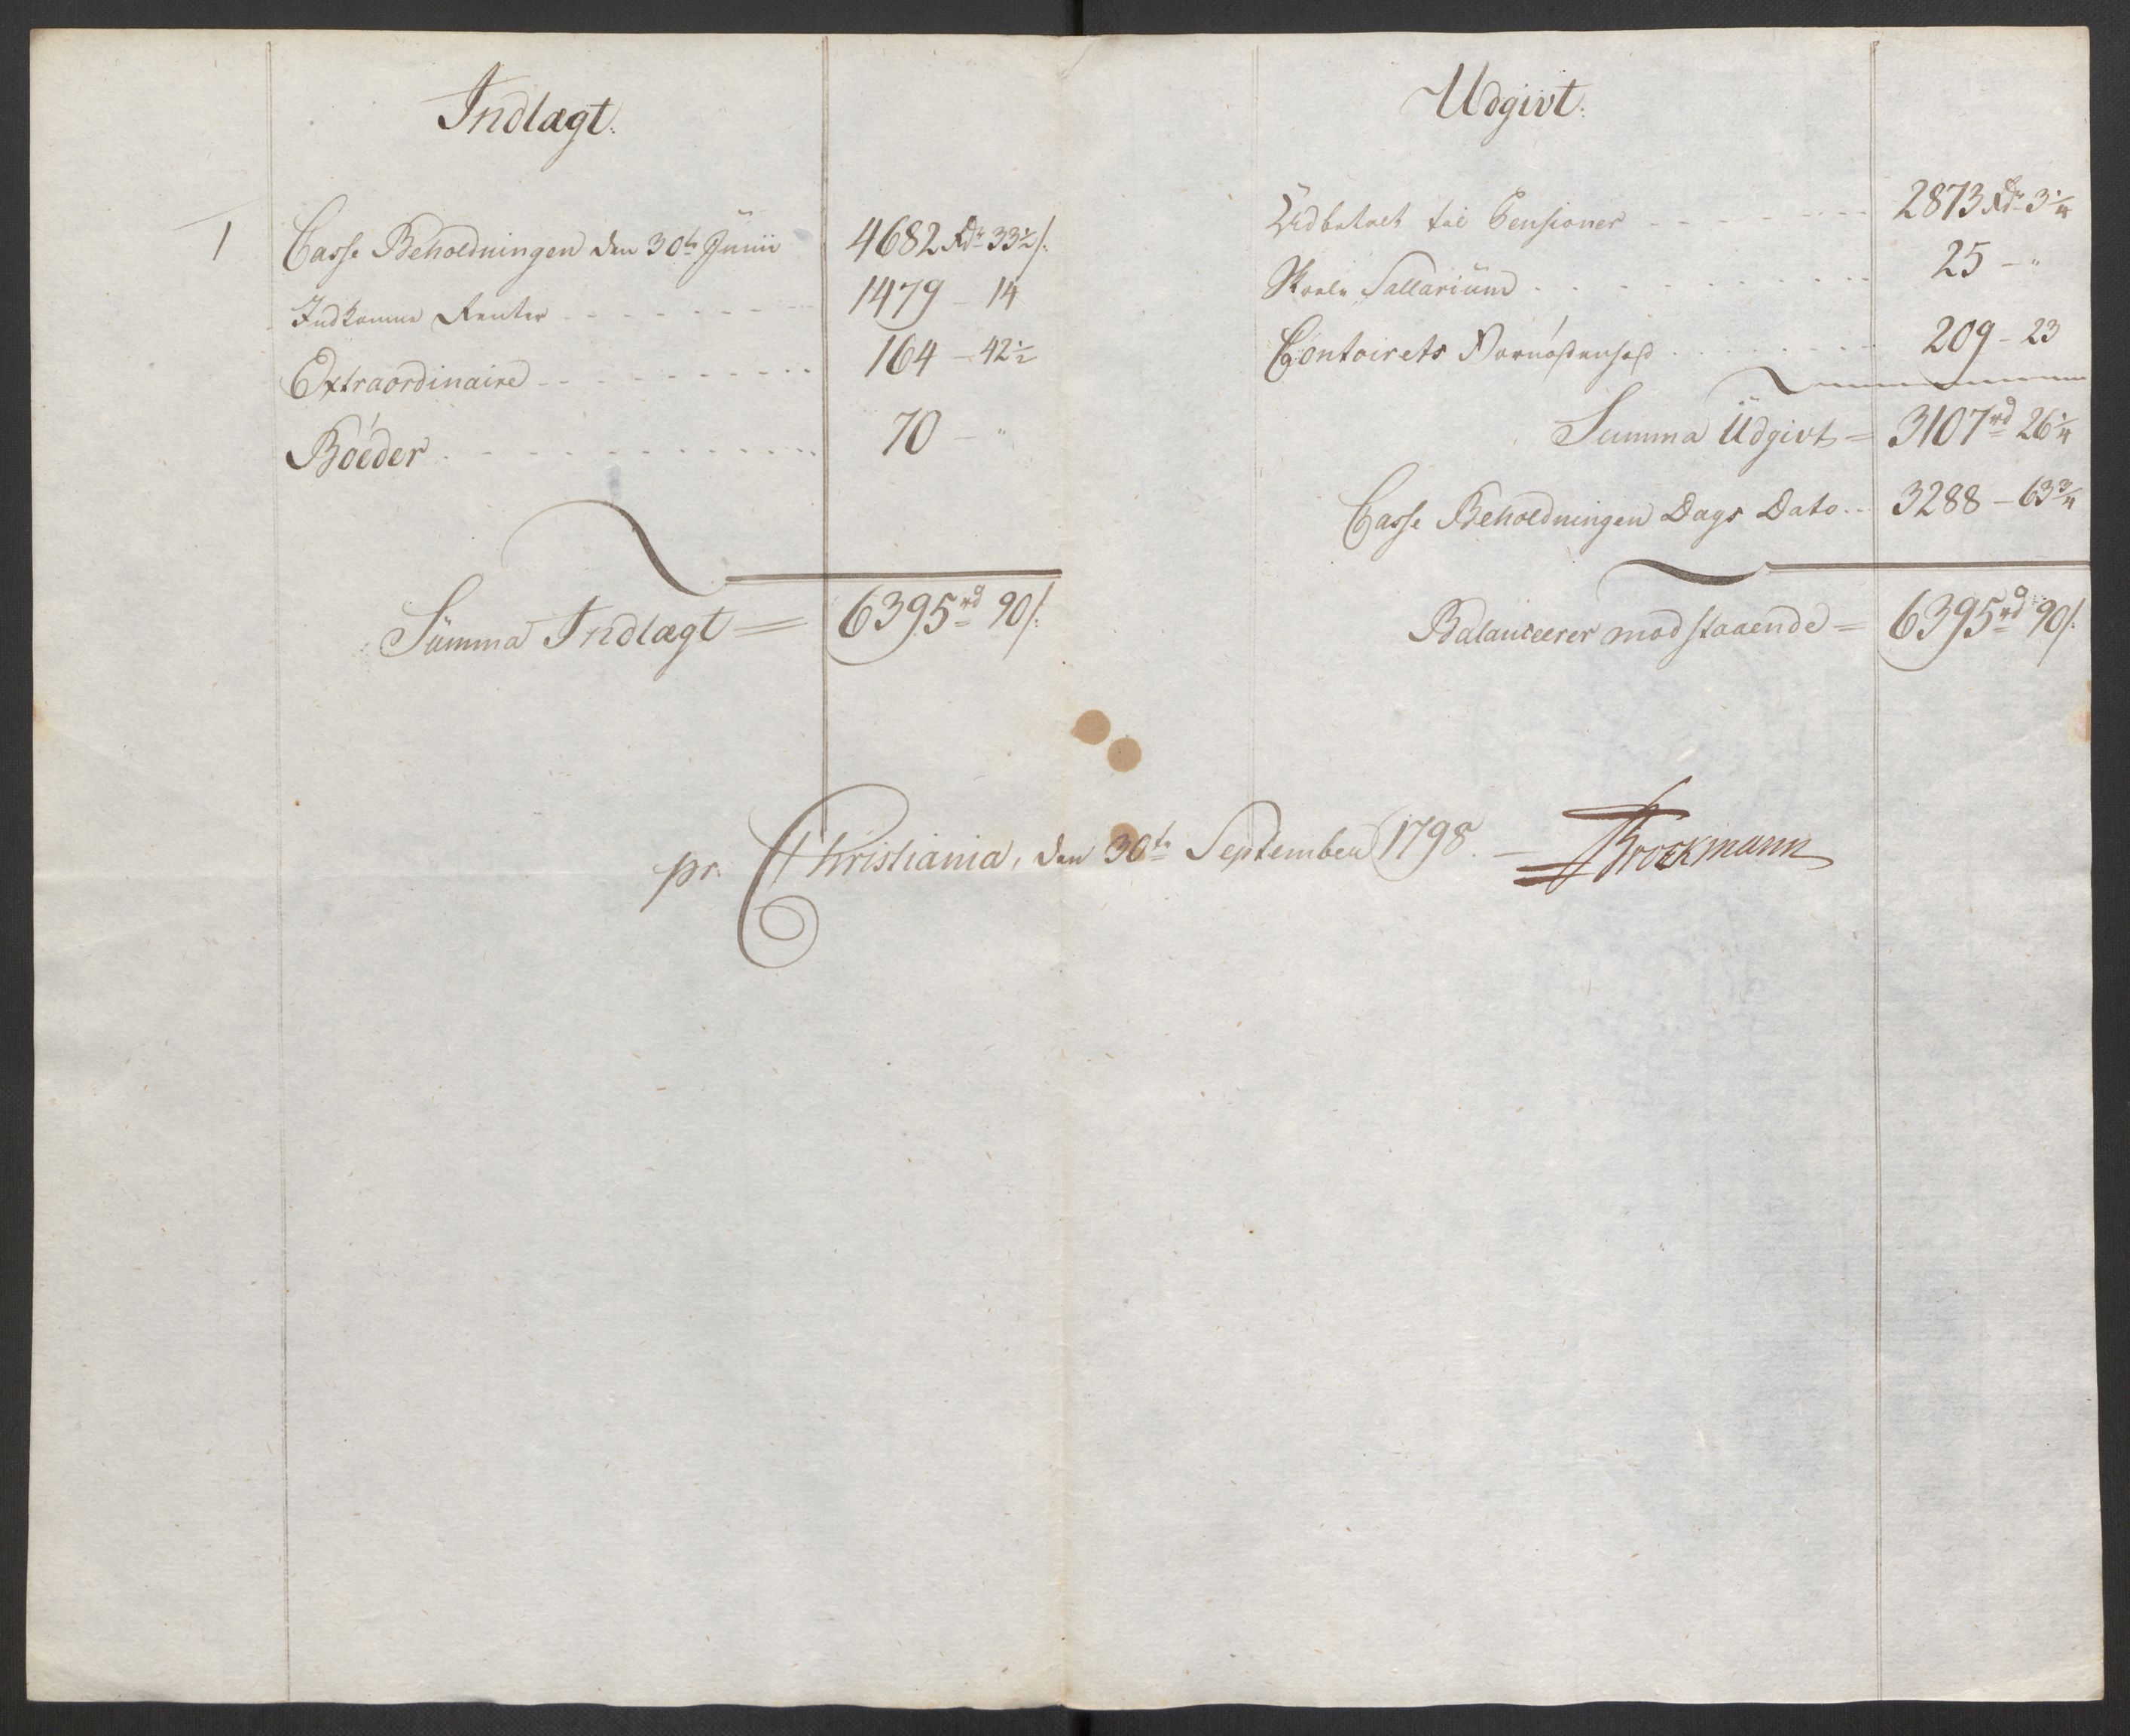 Indlagt.
1 Casse Beholdningen den 30te Junii 4682 Rdr 33½ s.
Indkomne Renter 1479 - 14
Extraordinaire 164 - 42½
Böder 70 - "
Summa Indlagt = 6395 rd 90 s.
Udgivt.
Udbetalt til Pensioner 2873 Rdr 3¼
Skole Sallarium 25 - "
Contoirets Fornödenhed 209 - 23
Summa Udgivt = 3107 rd 26¼
Casse Beholdningen Dags Dato 3288 - 63¾
Balanceerer modstaaende = 6395 rd 90 s.
pr. Christiania, den 30te September 1798. Brockmann